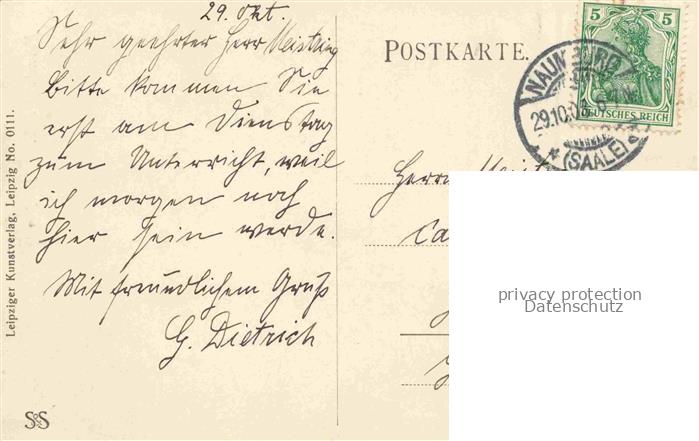 29. Okt.
Sehr geehrter Herr
Bitte kommen Sie
erst am Dienstag
zum Unterricht, weil
ich morgen noch
hier sein werde.
Mit freundlichem Gruß
G. Dietrich
POSTKARTE.
5 5
DEUTSCHES REICH
NAUMBURG
29.10.
* (SAALE)
Herrn
privacy protection
Datenschutz
Leipziger Kunstverlag, Leipzig No. 0111.
S&S